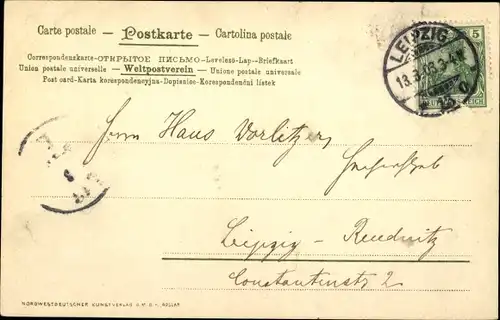 Carte postale — Postkarte — Cartolina postale
Correspondenskarte-ОТКРЫТОЕ ПИСЬМО-Levelező-Lap-Briefkaart
Union postale universelle — Weltpostverein — Unione postale universale
Post card-Karta korespondencyjna-Dopisnice-Korespondenční lístek
LEIPZIG
5
Herrn Haus Vorlitzer,
Leipzig - Reudnitz
Constantinstr 2
NORDWESTDEUTSCHER KUNSTVERLAG